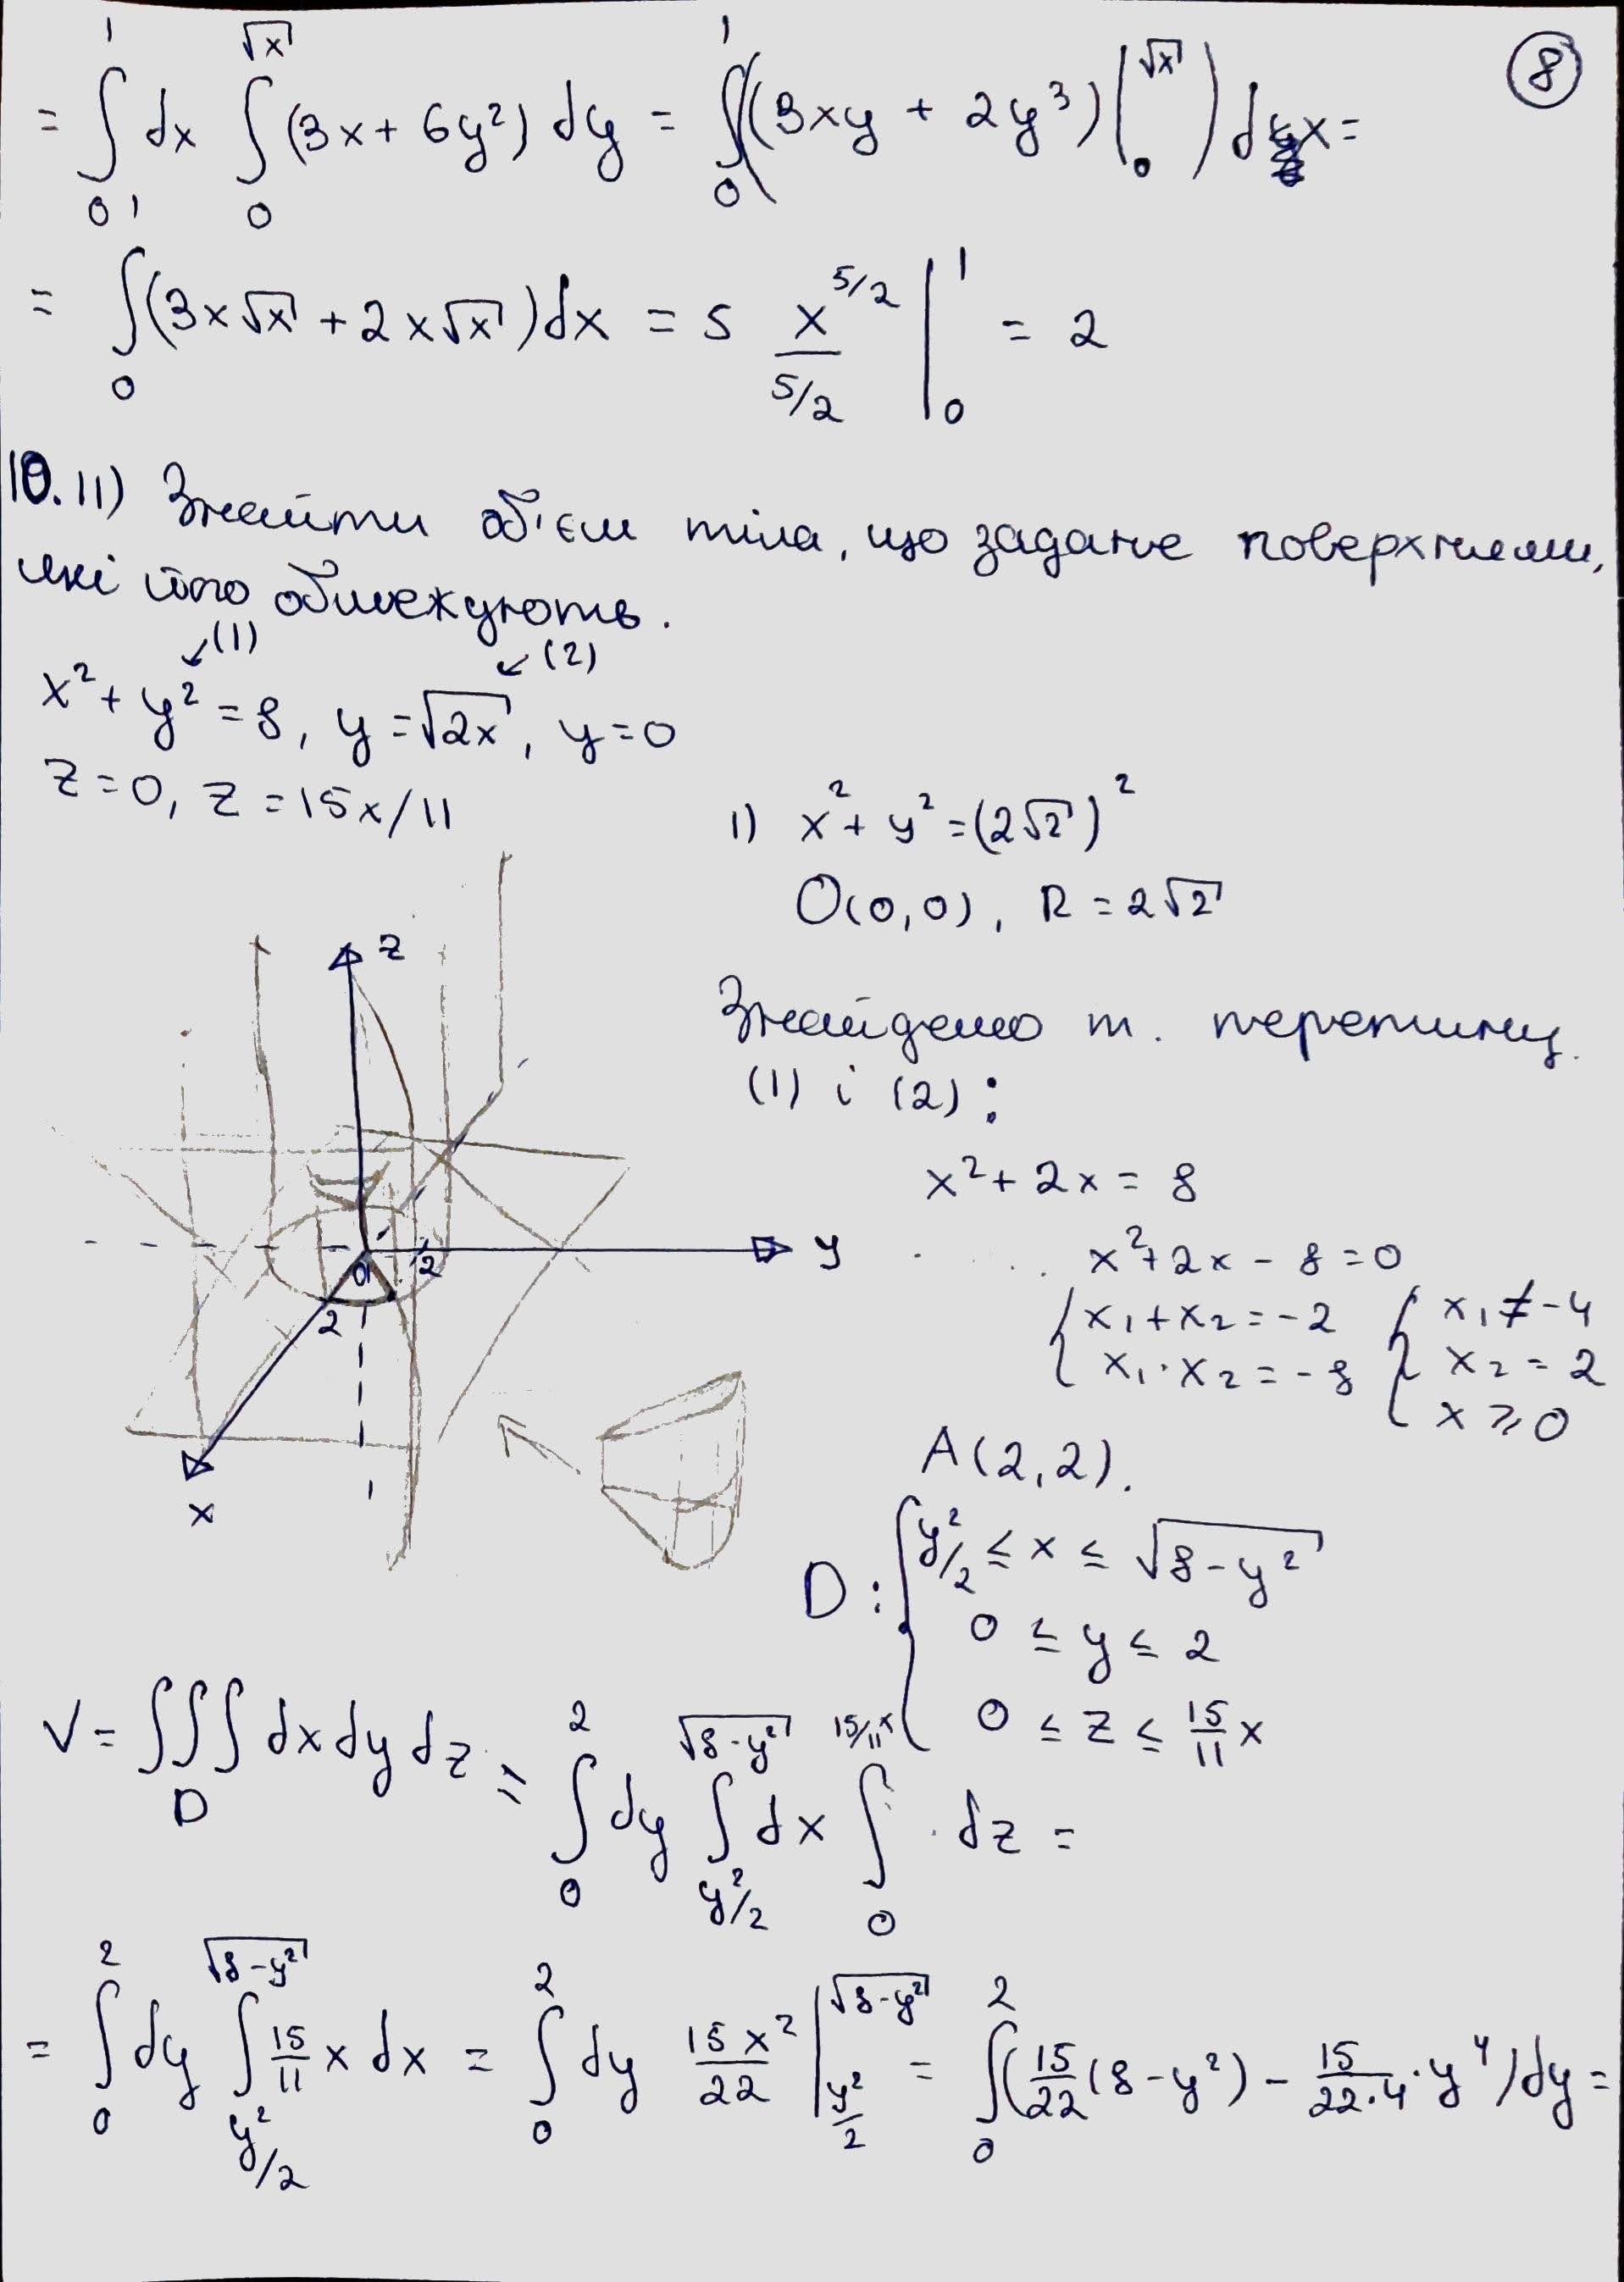 8
= ∫₀¹ dx ∫₀^√x (3x + 6y²) dy = ∫₀¹ ((3xy + 2y³) |₀^√x) dx =
= ∫₀¹ (3x√x + 2x√x) dx = 5 x^(5/2) / (5/2) |₀¹ = 2
10.11) Знайти об'єм тіла, що задане поверхнями,
які його обмежують.
↙(1) ↙(2)
x² + y² = 8, y = √2x, y = 0
z = 0, z = 15x/11
1) x² + y² = (2√2)²
O(0,0), R = 2√2
Знайдемо т. перетину
(1) і (2):
x² + 2x = 8
x² + 2x - 8 = 0
{ x₁ + x₂ = -2 { x₁ ≠ -4
x₁ · x₂ = -8 x₂ = 2
x ≥ 0
z
y
0 2
2
x
A(2,2).
D: { y²/2 ≤ x ≤ √(8-y²)
0 ≤ y ≤ 2
0 ≤ z ≤ 15/11 x
V = ∫∫∫_D dx dy dz = ∫₀² dy ∫_{y²/2}^{√(8-y²)} dx ∫₀^{15/11 x} dz =
= ∫₀² dy ∫_{y²/2}^{√(8-y²)} 15/11 x dx = ∫₀² dy 15x²/22 |_{y²/2}^{√(8-y²)} = ∫₀² (15/22 (8-y²) - 15/(22·4) · y⁴) dy =